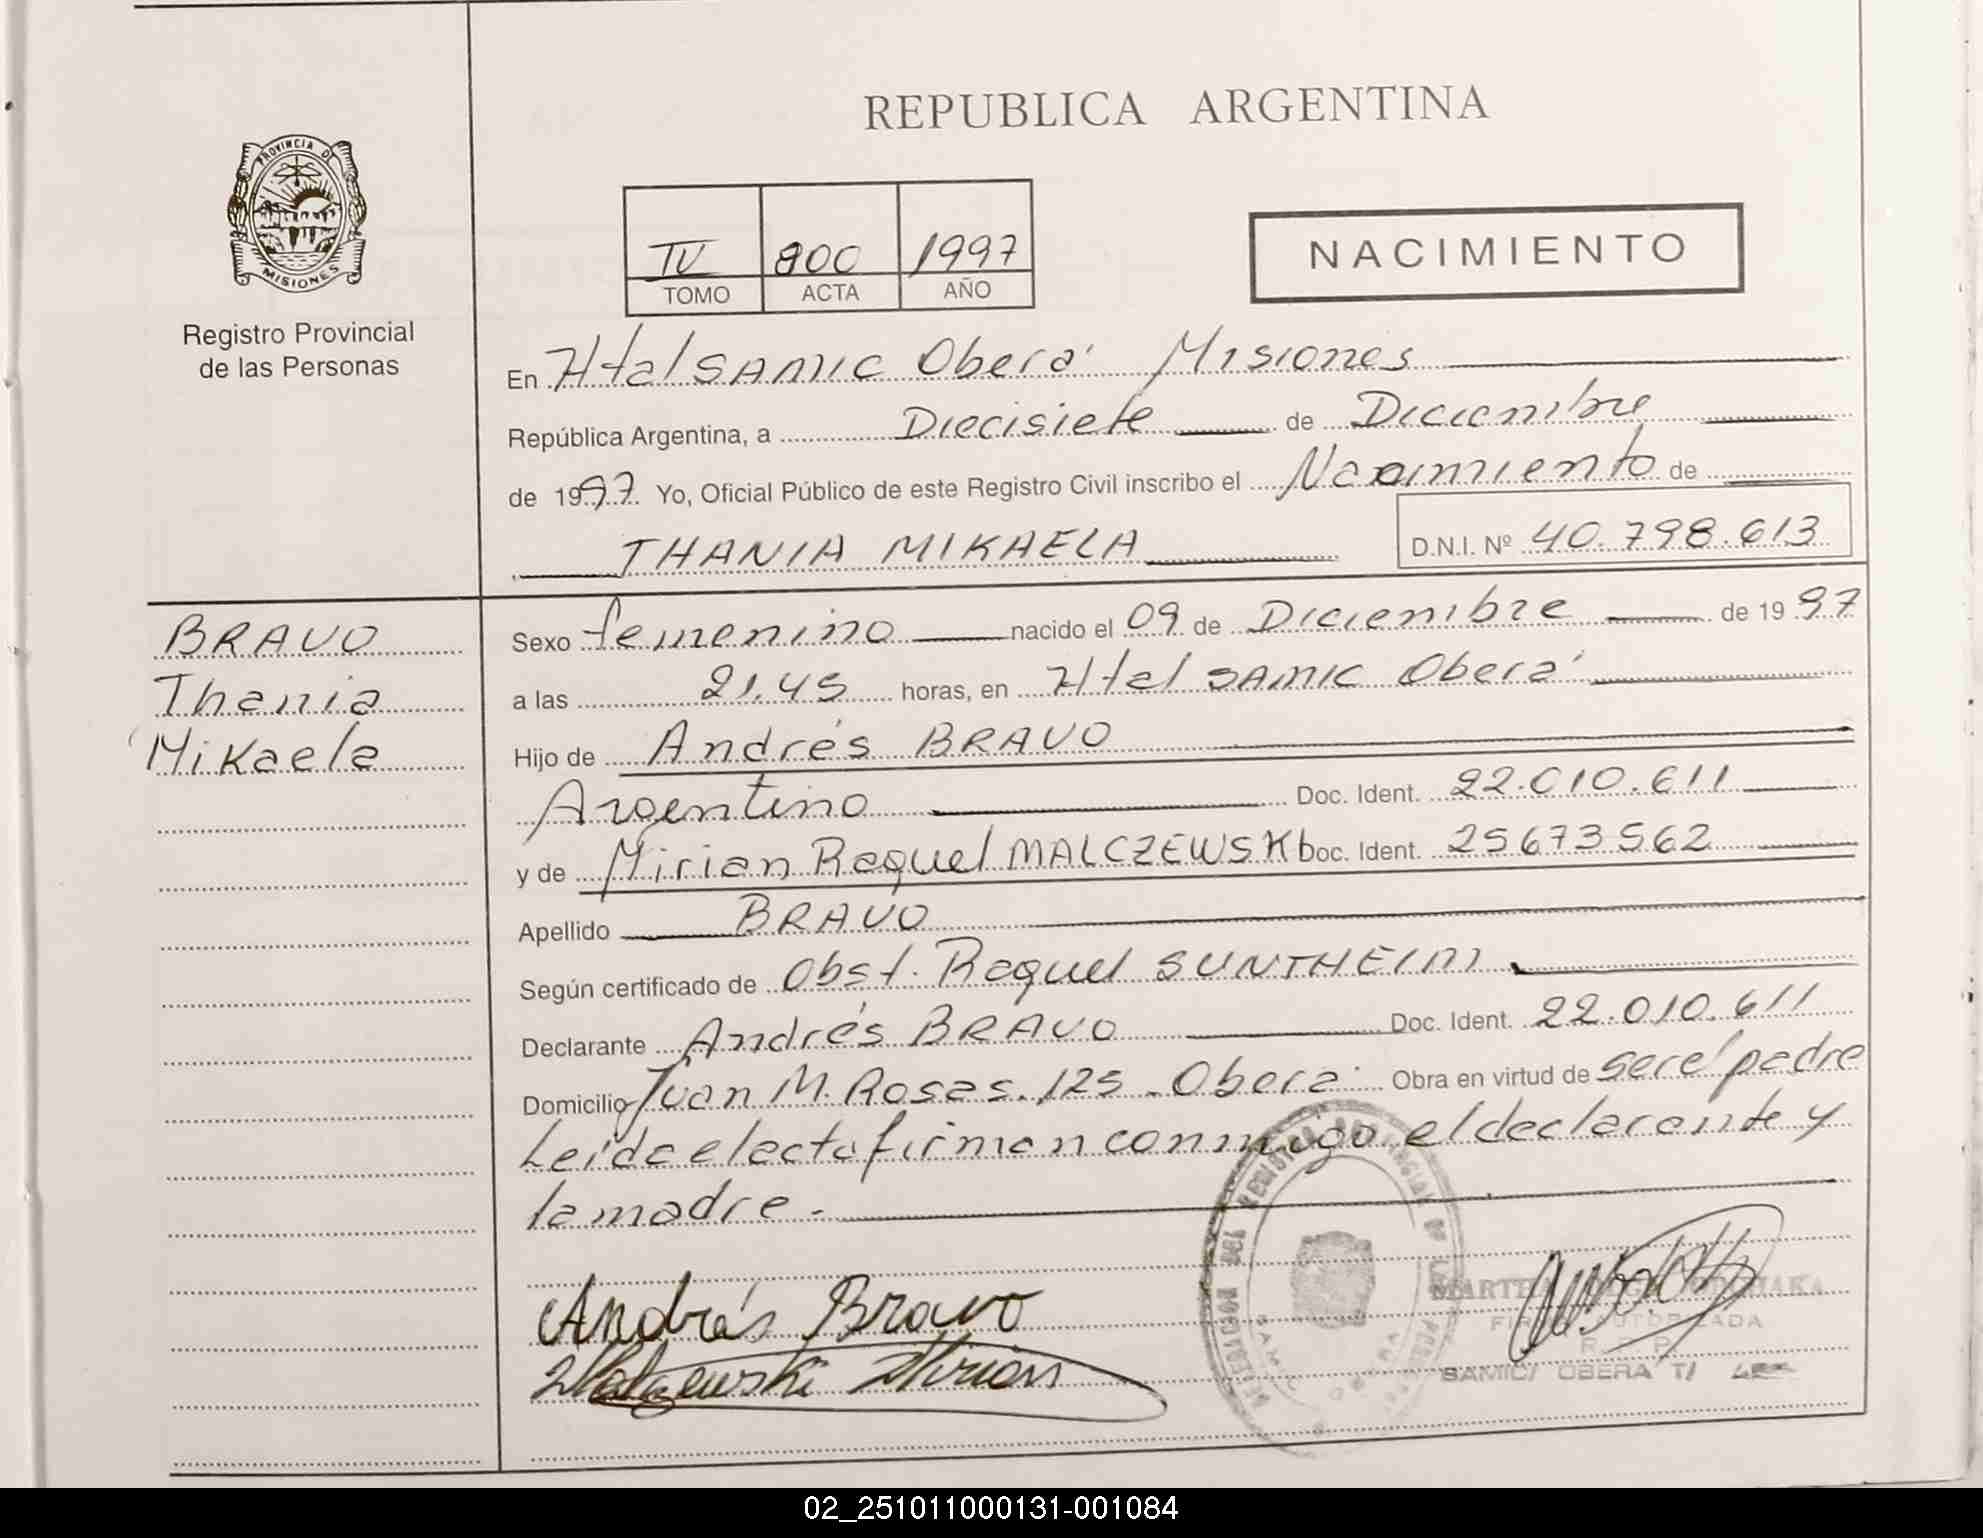 REPUBLICA ARGENTINA
PROVINCIA DE
MISIONES
Registro Provincial
de las Personas
IV 800 1997
TOMO ACTA AÑO
NACIMIENTO
En Htal SAMIC Oberá Misiones
República Argentina, a Diecisiete de Diciembre
de 1997. Yo, Oficial Público de este Registro Civil inscribo el Nacimiento de
THANIA MIKAELA
D.N.I. Nº 40.798.613
BRAVO
Thania
Mikaela
Sexo femenino nacido el 09 de Diciembre de 1997
a las 21.45 horas, en Htal SAMIC Oberá
Hijo de Andrés BRAVO
Argentino Doc. Ident. 22.010.611
y de Mirian Raquel MALCZEWSKI Doc. Ident. 25673562
Apellido BRAVO
Según certificado de Obst. Raquel SUNTHEIM
Declarante Andrés BRAVO Doc. Ident. 22.010.611
Domicilio Juan M. Rosas. 125 - Oberá Obra en virtud de ser el padre
Leida el acta firman conmigo el declarante y
la madre.-
Andrés Bravo
Malczewski Mirian
MARTHA
FIRMA AUTORIZADA
R P P
SAMIC/ OBERA T/
02_251011000131-001084